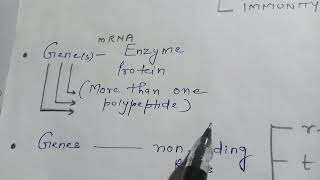 IMMUNITY
mRNA
• Gene(s) - Enzyme
Protein
(More than one
polypeptide)
• Genes —— non-